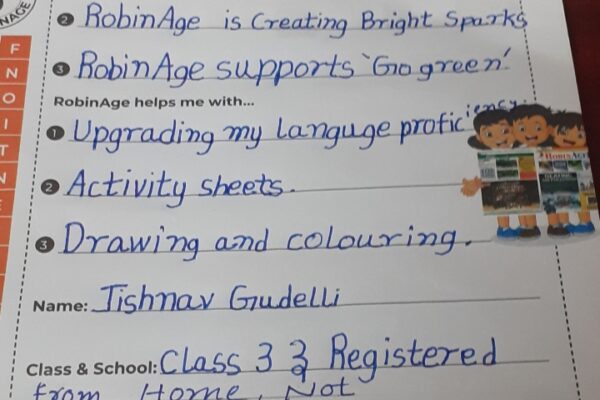 NAGE
F
N
O
I
T
N
2 RobinAge is Creating Bright Sparks
3 RobinAge supports 'Go green'
RobinAge helps me with...
1 Upgrading my languge proficiency
2 Activity sheets.
3 Drawing and colouring.
Name: Jishnav Gudelli
Class & School: Class 3 Registered
from Home, Not